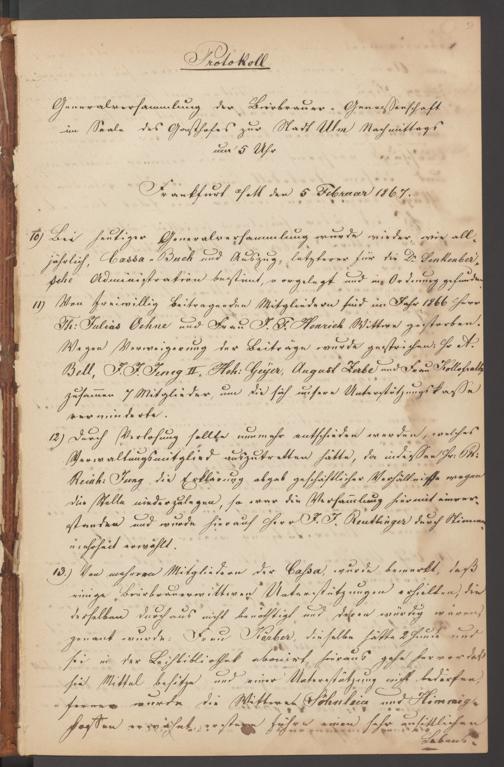 Protokoll
Generalversammlung der Bierbrauer-Genossenschaft
im Saale des Gasthofes zur Stadt Ulm Nachmittags
um 5 Uhr
Frankfurt a/M den 5 Februar 1867.
10) Bei heutiger Generalversammlung wurde wieder wie all-
jährlich, Cassa-Buch und Auszug, letzterer für die Dr. Senkenber-
sche Administration bestimt, vorgelegt und in Ordnung gefunden.
11) Von freiwillig beitragenden Mitgliedern sind im Jahr 1866 Herr
Th: Julius Oehne und Frau J. F. Henrich Wittwe gestorben.
Wegen Verweigerung der Beiträge wurde gestrichen: Hr A.
Bell, J. J. Jung II, Hch: Geyer, August Zerbe und Frau
zusammen 7 Mitglieder, um die sich unsere Unterstützungskasse
verminderte.
12) Durch Verlosung sollte nunmehr entschieden werden, welches
Verwaltungsmitglied auszutretten hätte, da indessen Hr:
Jung die Erklärung abgab geschäftlicher Verhältnisse wegen
die Stelle niederzulegen, so war die Versamlung hiermit einver-
standen und wurde hierauf Herr J. J. Reutlinger durch Stimmen-
mehrheit erwählt.
13.) Von mehreren Mitgliedern der Cassa, wurde bemerkt, daß
einige Bierbrauerwittwen Unterstützungen erhielten, die
derselben durchaus nicht benöthigt und deren würdig wären,
genant wurde: Frau Körber, dieselbe hätte 2 Hunde und
sei in der Leihbibliothek abonirt, hieraus gehe hervor daß
sie Mittel besitze und einer Unterstützung nicht bedürfen,
ferner wurde die Wittwen Söhnlein und
erwähnt, erstere führe einen sehr unsittlichen
Lebens-